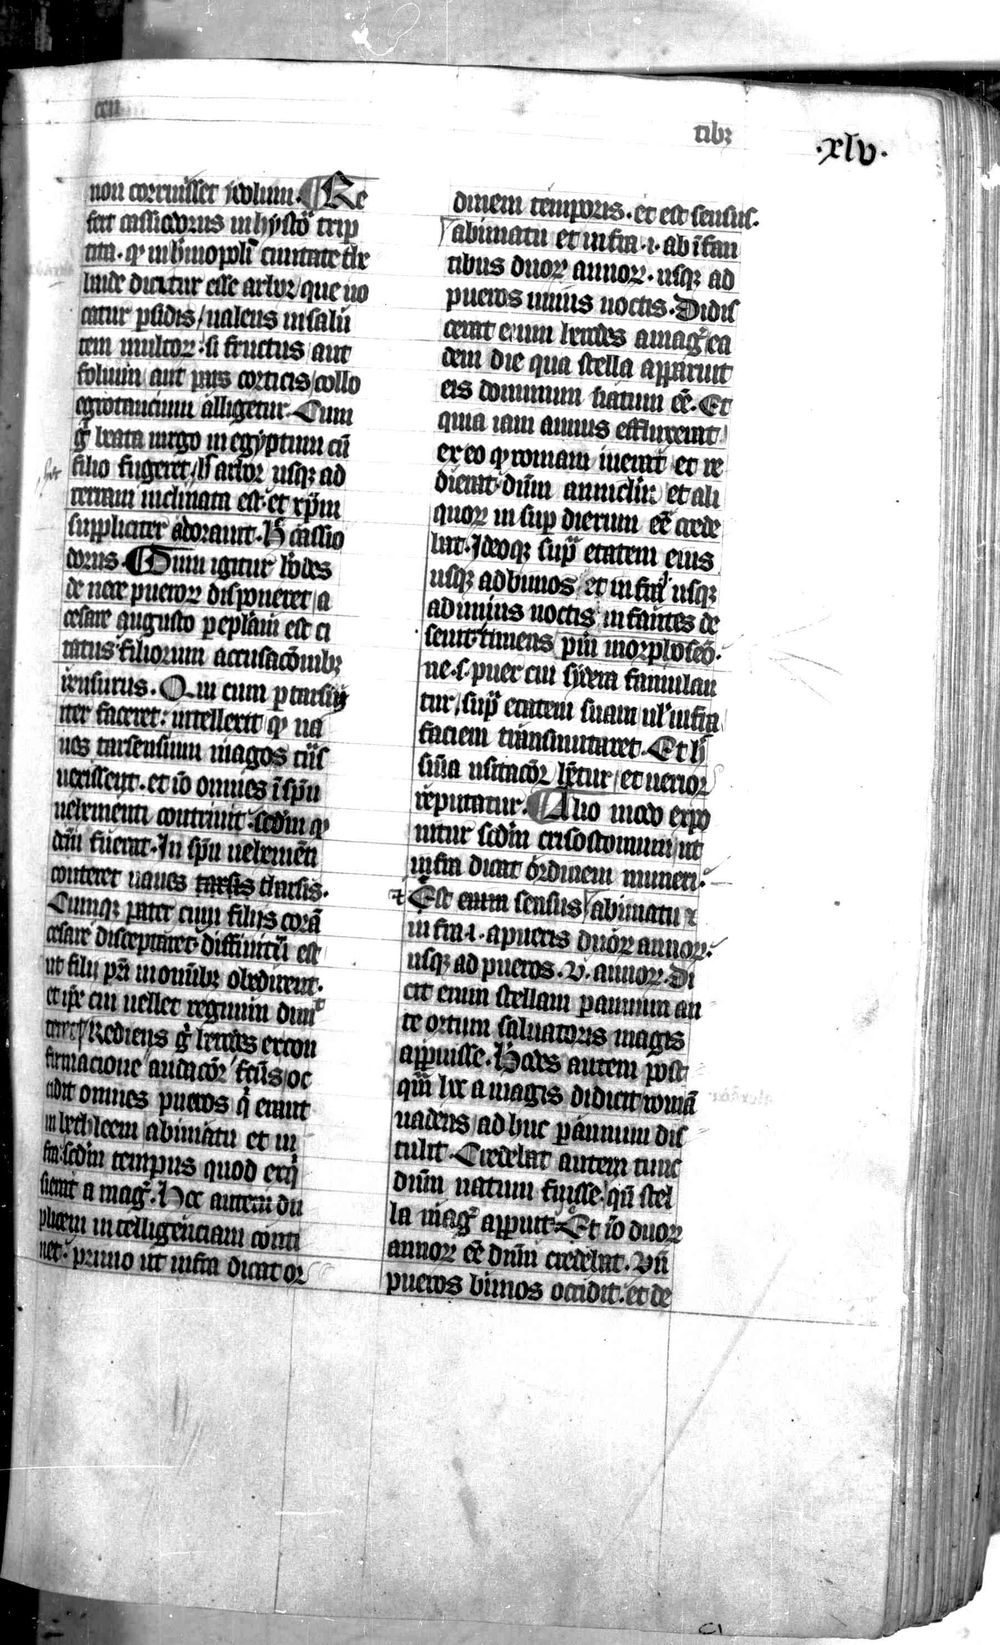 ccii
tibꝫ
·xlv·
non corruisset ydolum. Re
fert cassiodorus in hystoͬ trip
tita. qͥ in hͥmopoli ciuitate the
baide dicitur esse arbor que uo
catur persidis / ualens in salu
tem multoꝝ. si fructus aut
folium aut pars corticis / collo
egrotancium alligetur. Cum
gͦ beata uirgo in egyptum cū
filio fugeret / hͨ arbor usqꝫ ad
terram inclinata est. et xp̄m
suppliciter adorauit. Hͨ cassio
dorus. Dum igitur h̓odes
de nece pueroꝝ disponeret / a
cesare augusto per epl̄am est ci
tatus filiorum accusacōnibꝫ
rensurus. Qui cum per tarsum
iter faceret: intellexit qͥ na
ues tarsensium magos tͥns
uexissent. et iō omnes ī sp̄u
uehementi contriuit. scd̄m qͥ
dc̄m fuerat. In sp̄u uehemēti
conteret naues tarsis tharsis.
Cumqꝫ pater cum filijs corā
cesare disceptaret. diffinitū est
ut filij pr̄i in omībꝫ obedirent.
et ip̄e cui uellet regnum dimͭ
teret. Rediens gͦ herodes ex con
firmacione audacōꝛ fc̄us / oc
cidit omnes pueros qͥ erant
in bethleem a bimatu et in
fra. scd̄m tempus quod exqͥ
sierat a magͥ. Hoc autem du
plicem intelligenciam conti
net. primo ut infra dicat or
dinem temporis. et est sensus.
a bimatu et infra .i. ab īfan
tibus duoꝝ annoꝝ. usqꝫ ad
pueros unius noctis. Didi
cerat enim herodes a magͥ ea
dem die qua stella apparuit
eis dominum natum eē. Et
quia iam annus effluxerat
ex eo qͥ romam iuerat et re
dierat. dn̄m anniclū et ali
quoꝝ insuper dierum eē crede
bat. Ideoqꝫ supͣ etatem eius
usqꝫ ad bimos / et infra usqꝫ
ad unius noctis infantes de
seuit. timens / puͥ morphoseō.
ne .s. puer cui sydera famulan
tur / supͣ etatem suam ul̓ infra
faciem transmutaret. Et hͨ
sn̄ia usitacōꝛ hētur / et uerior
reputatur. Alio modo expo
nitur scd̄m crisostomum / ut
infra dicat ordinem numeri.
Est enim sensus / a bimatu et
infra .i. a pueris duoꝝ annoꝝ.
usqꝫ ad pueros .v. annoꝝ. Di
cit enim stellam per annum an
te ortum saluatoris magis
apparuisse. Herodes autem post
qͣm hec a magis didicit / romā
uadens / ad huc per annum dis
tulit. Credebat autem tunc
dn̄m natum fuisse qn̄ stel
la magͥ apparuit. Et iō duoꝝ
annoꝝ eē dn̄m credebat. Vn̄
pueros bimos occidit. et de